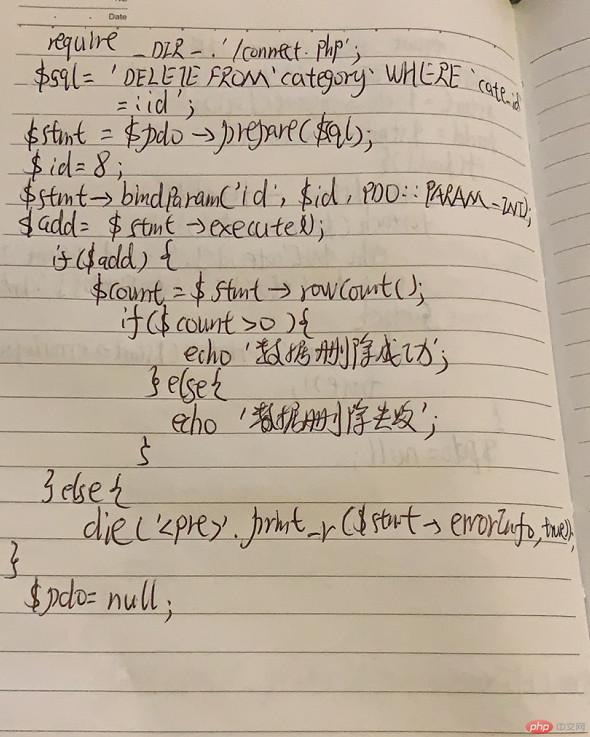 Date
require __DIR__.'/connect.php';
$sql= 'DELETE FROM `category` WHERE `cate_id`
=:id';
$stmt = $pdo->prepare($sql);
$id=8;
$stmt->bindParam('id', $id, PDO::PARAM_INT);
$add= $stmt->execute();
if($add) {
$count = $stmt->rowCount();
if($count>0){
echo '数据删除成功';
}else{
echo '数据删除失败';
}
}else{
die('<pre>'.print_r($stmt->errorInfo,true));
}
$pdo=null;
php 中文网